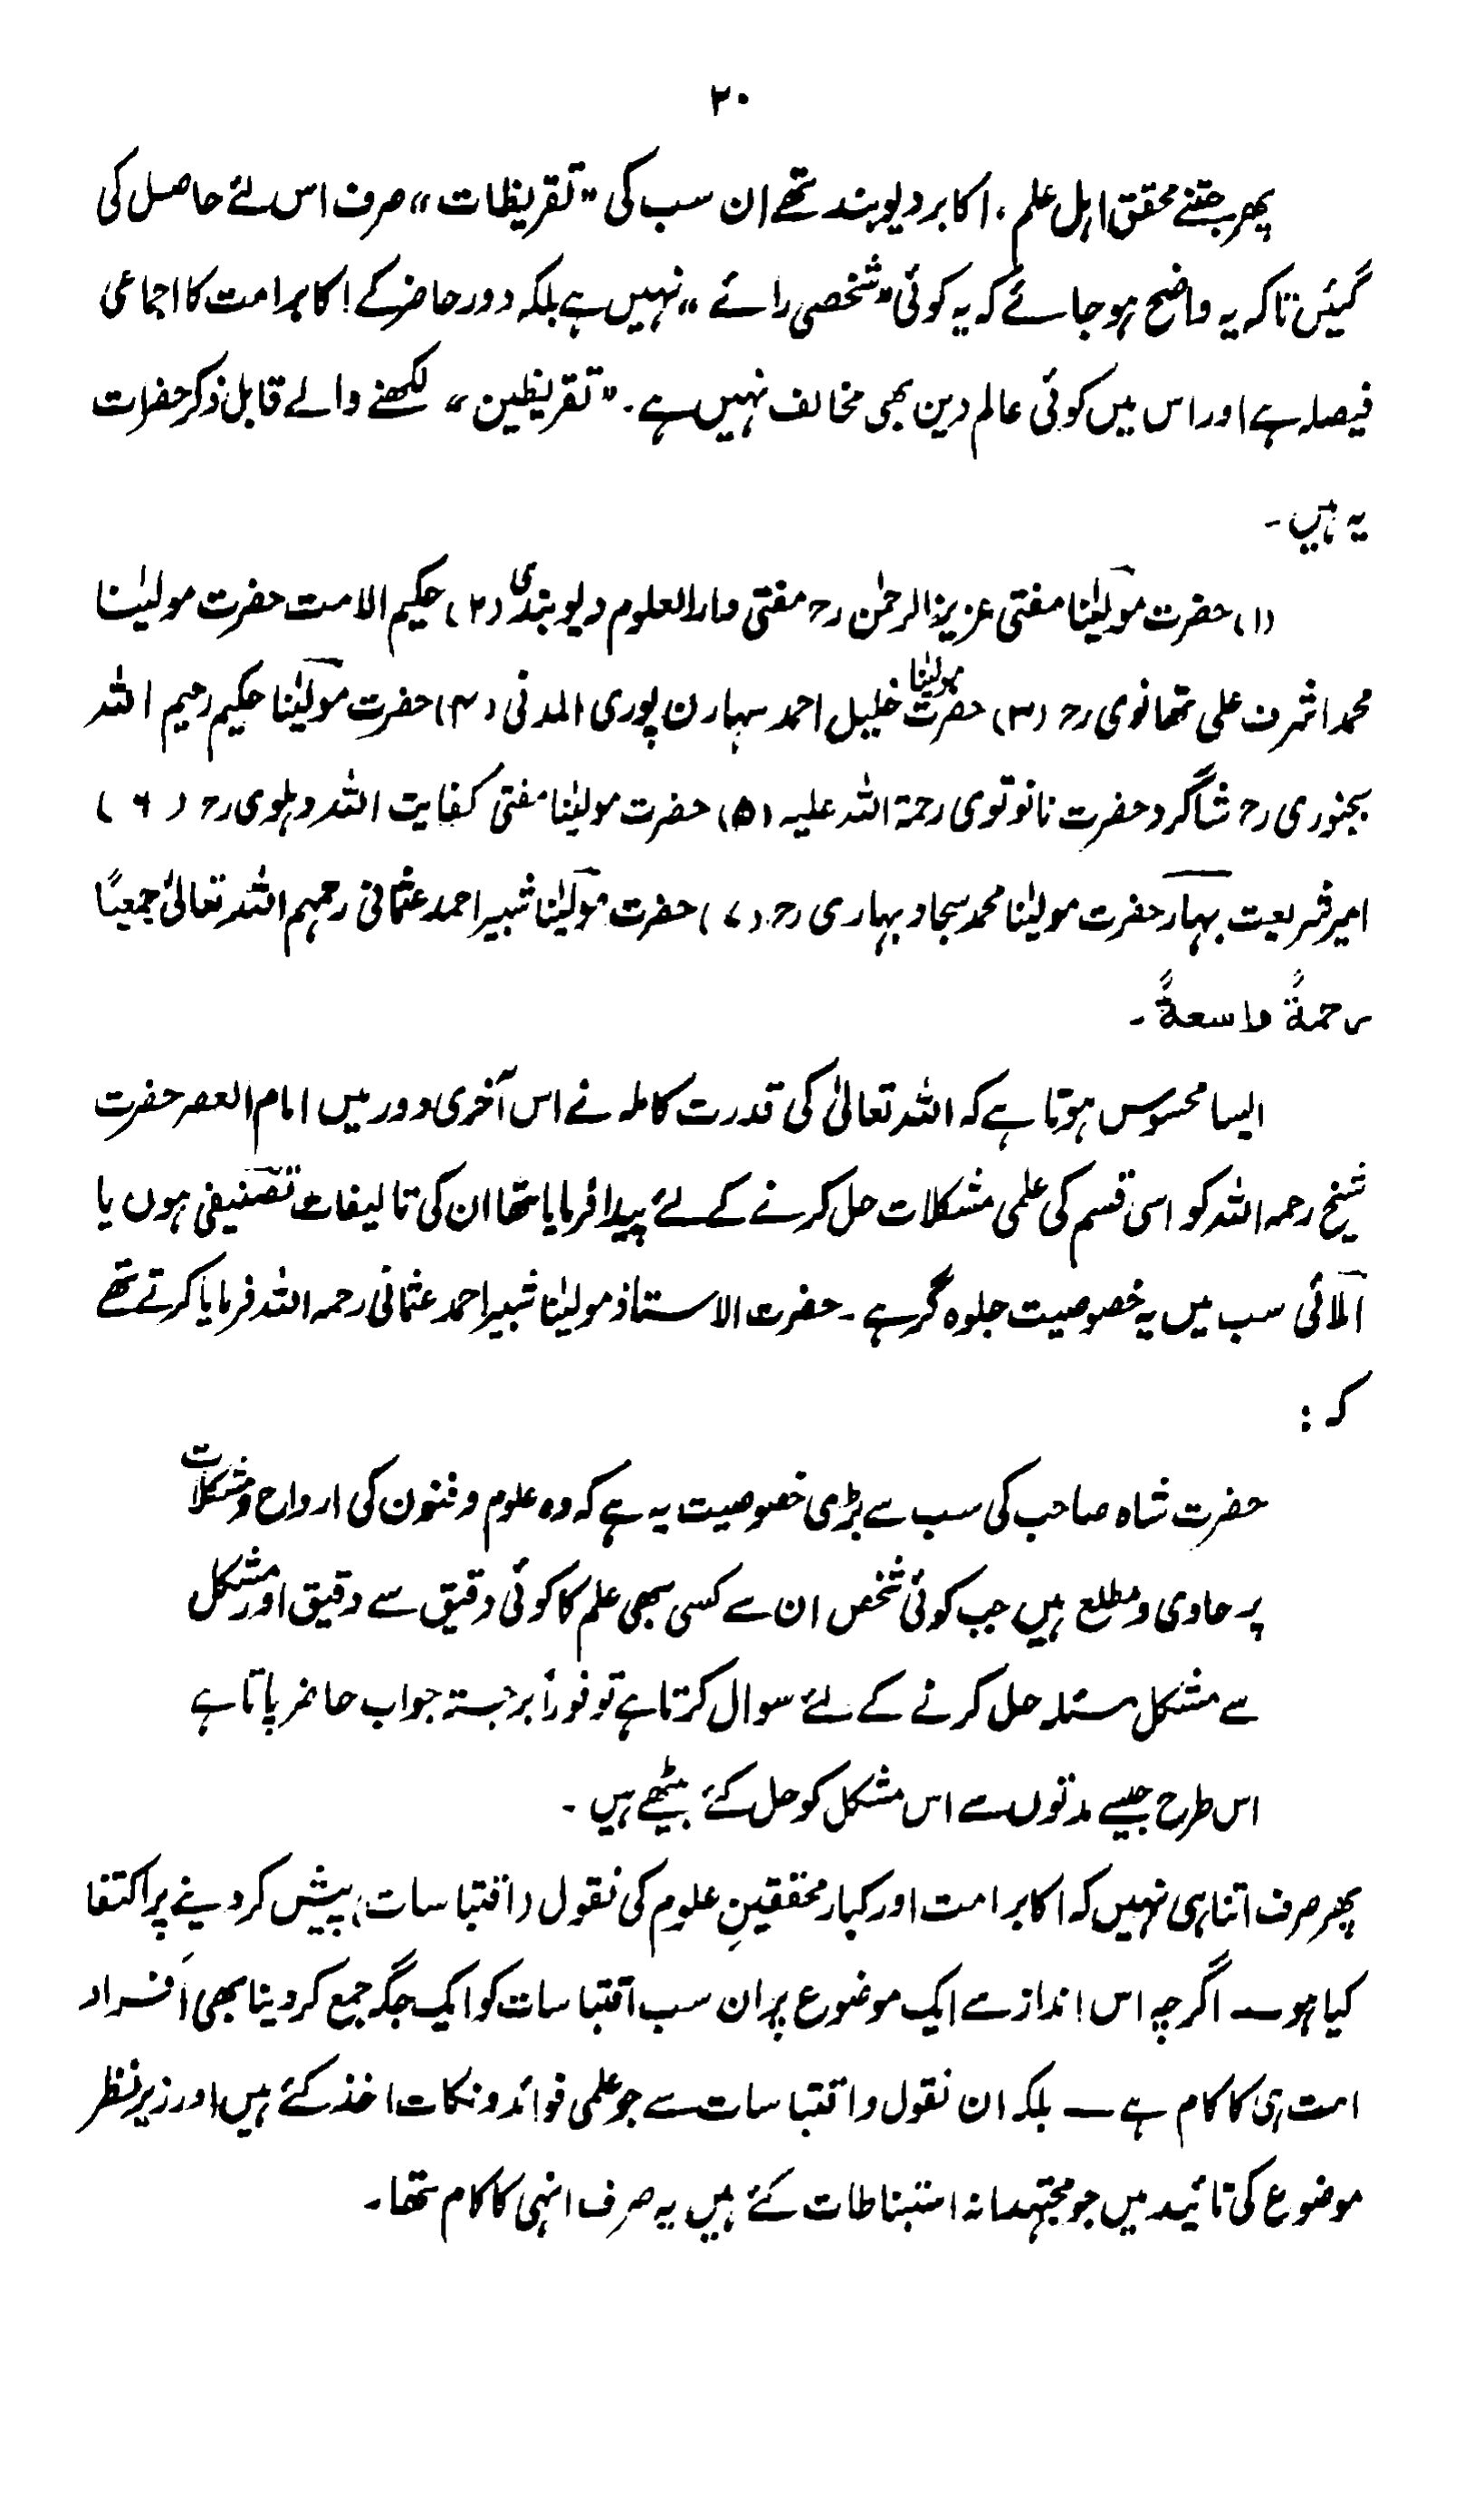 ۲۰
پھر جتنے محقق اہل علم ، اکابر دیوبند تھے ان سب کی "تقریظات" صرف اس لئے حاصل کی
گئیں تاکہ یہ واضح ہو جائے کہ یہ کوئی "شخصی رائے" نہیں ہے بلکہ دور حاضر کے اکابر امت کا اجماعی
فیصلہ ہے اور اس میں کوئی عالم دین بھی مخالف نہیں ہے۔ "تقریظیں" لکھنے والے قابل ذکر حضرات
یہ ہیں۔
(۱) حضرت مولینا مفتی عزیز الرحمٰن رح مفتی دار العلوم دیوبندی (۲) حکیم الامت حضرت مولینا
محمد اشرف علی تھانوی رح (۳) حضرت مولینا خلیل احمد سہارن پوری المدنی (۴) حضرت مولینا حکیم رحیم اللہ
بجنوری رح شاگرد حضرت نانوتوی رحمۃ اللہ علیہ (۵) حضرت مولینا مفتی کفایت اللہ دہلوی رح (۶)
امیر شریعت بہار حضرت مولینا محمد سجاد بہاری رح (۷) حضرت مولینا شبیر احمد عثمانی رحمہم اللہ تعالیٰ جمیعًا
رحمةً واسعةً ۔
ایسا محسوس ہوتا ہے کہ اللہ تعالیٰ کی قدرت کاملہ نے اس آخری دور میں امام العصر حضرت
شیخ رحمہ اللہ کو اسی قسم کی علمی مشکلات حل کرنے کے لئے پیدا فرمایا تھا ان کی تالیفات تصنیفی ہوں یا
املائی سب میں یہ خصوصیت جلوہ گر ہے۔ حضرت الاستاذ مولینا شبیر احمد عثمانی رحمہ اللہ فرمایا کرتے تھے
کہ :
حضرت شاہ صاحب کی سب سے بڑی خصوصیت یہ ہے کہ وہ علوم و فنون کی ارواح و مشکلات
پر حاوی و مطلع ہیں جب کوئی شخص ان سے کسی بھی علم کا کوئی دقیق سے دقیق اور مشکل
سے مشکل مسئلہ حل کرنے کے لئے سوال کرتا ہے تو فوراً برجستہ جواب حاضر پاتا ہے
اس طرح جیسے مدتوں سے اس مشکل کو حل کئے بیٹھے ہیں ۔
پھر صرف اتنا ہی نہیں کہ اکابر امت اور کبار محققینِ علوم کی نقول (اقتباسات) پیش کر دینے پر اکتفا
کیا ہو — اگرچہ اس انداز سے ایک موضوع پر ان سب اقتباسات کو ایک جگہ جمع کر دینا بھی اَفراد
امت ہی کا کام ہے — بلکہ ان نقول و اقتباسات سے جو علمی فوائد و نکات اخذ کئے ہیں اور زیر نظر
موضوع کی تائید میں جو مجتہدانہ استنباطات کئے ہیں یہ صرف انہی کا کام تھا۔